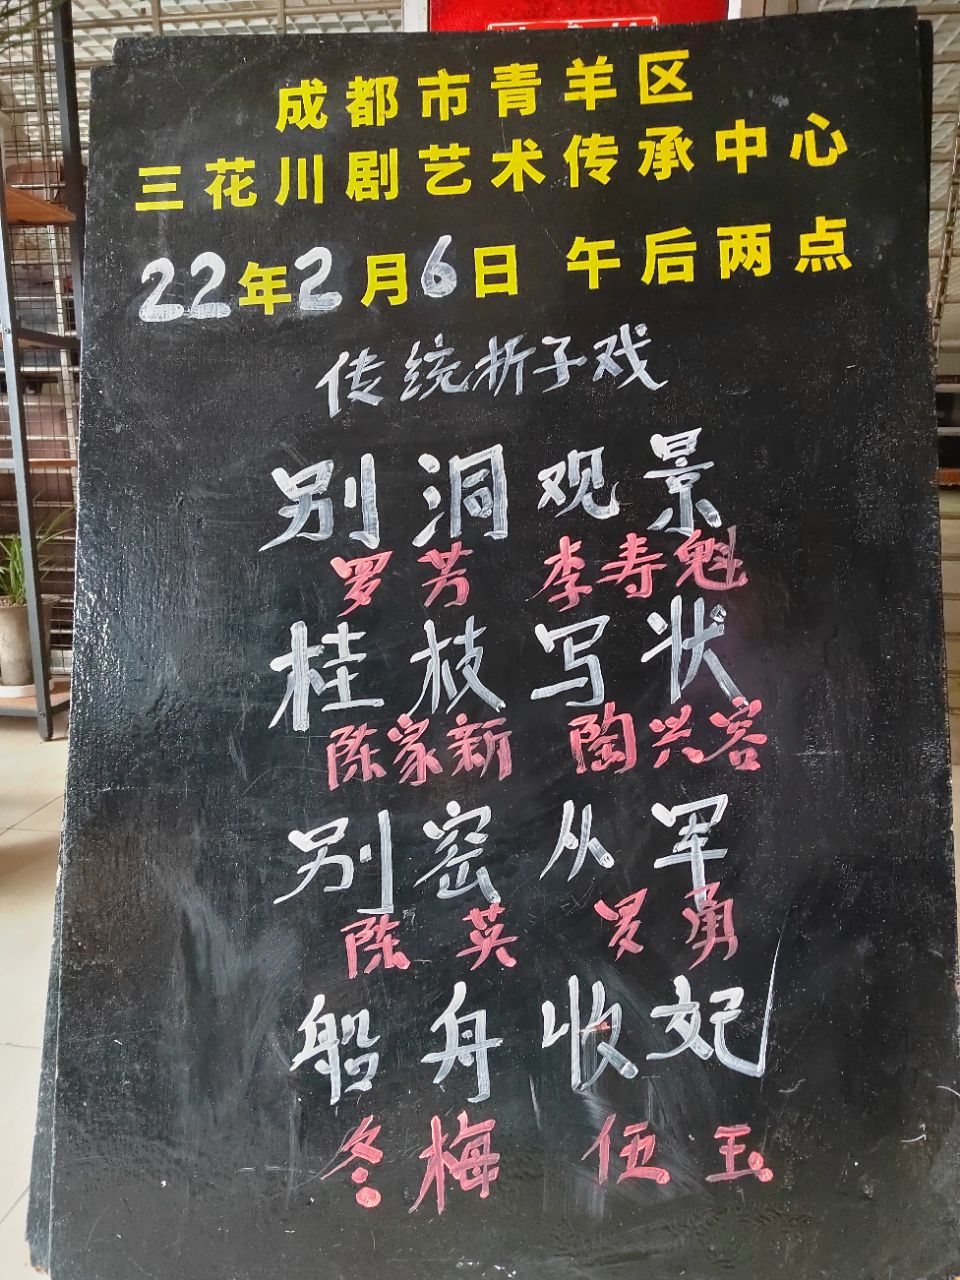 成都市青羊区
三花川剧艺术传承中心
22年2月6日 午后两点
传统折子戏
别洞观景
罗芳 李寿魁
桂枝写状
陈家新 陶兴容
别窑从军
陈英 罗勇
船舟收妃
冬梅 伍玉